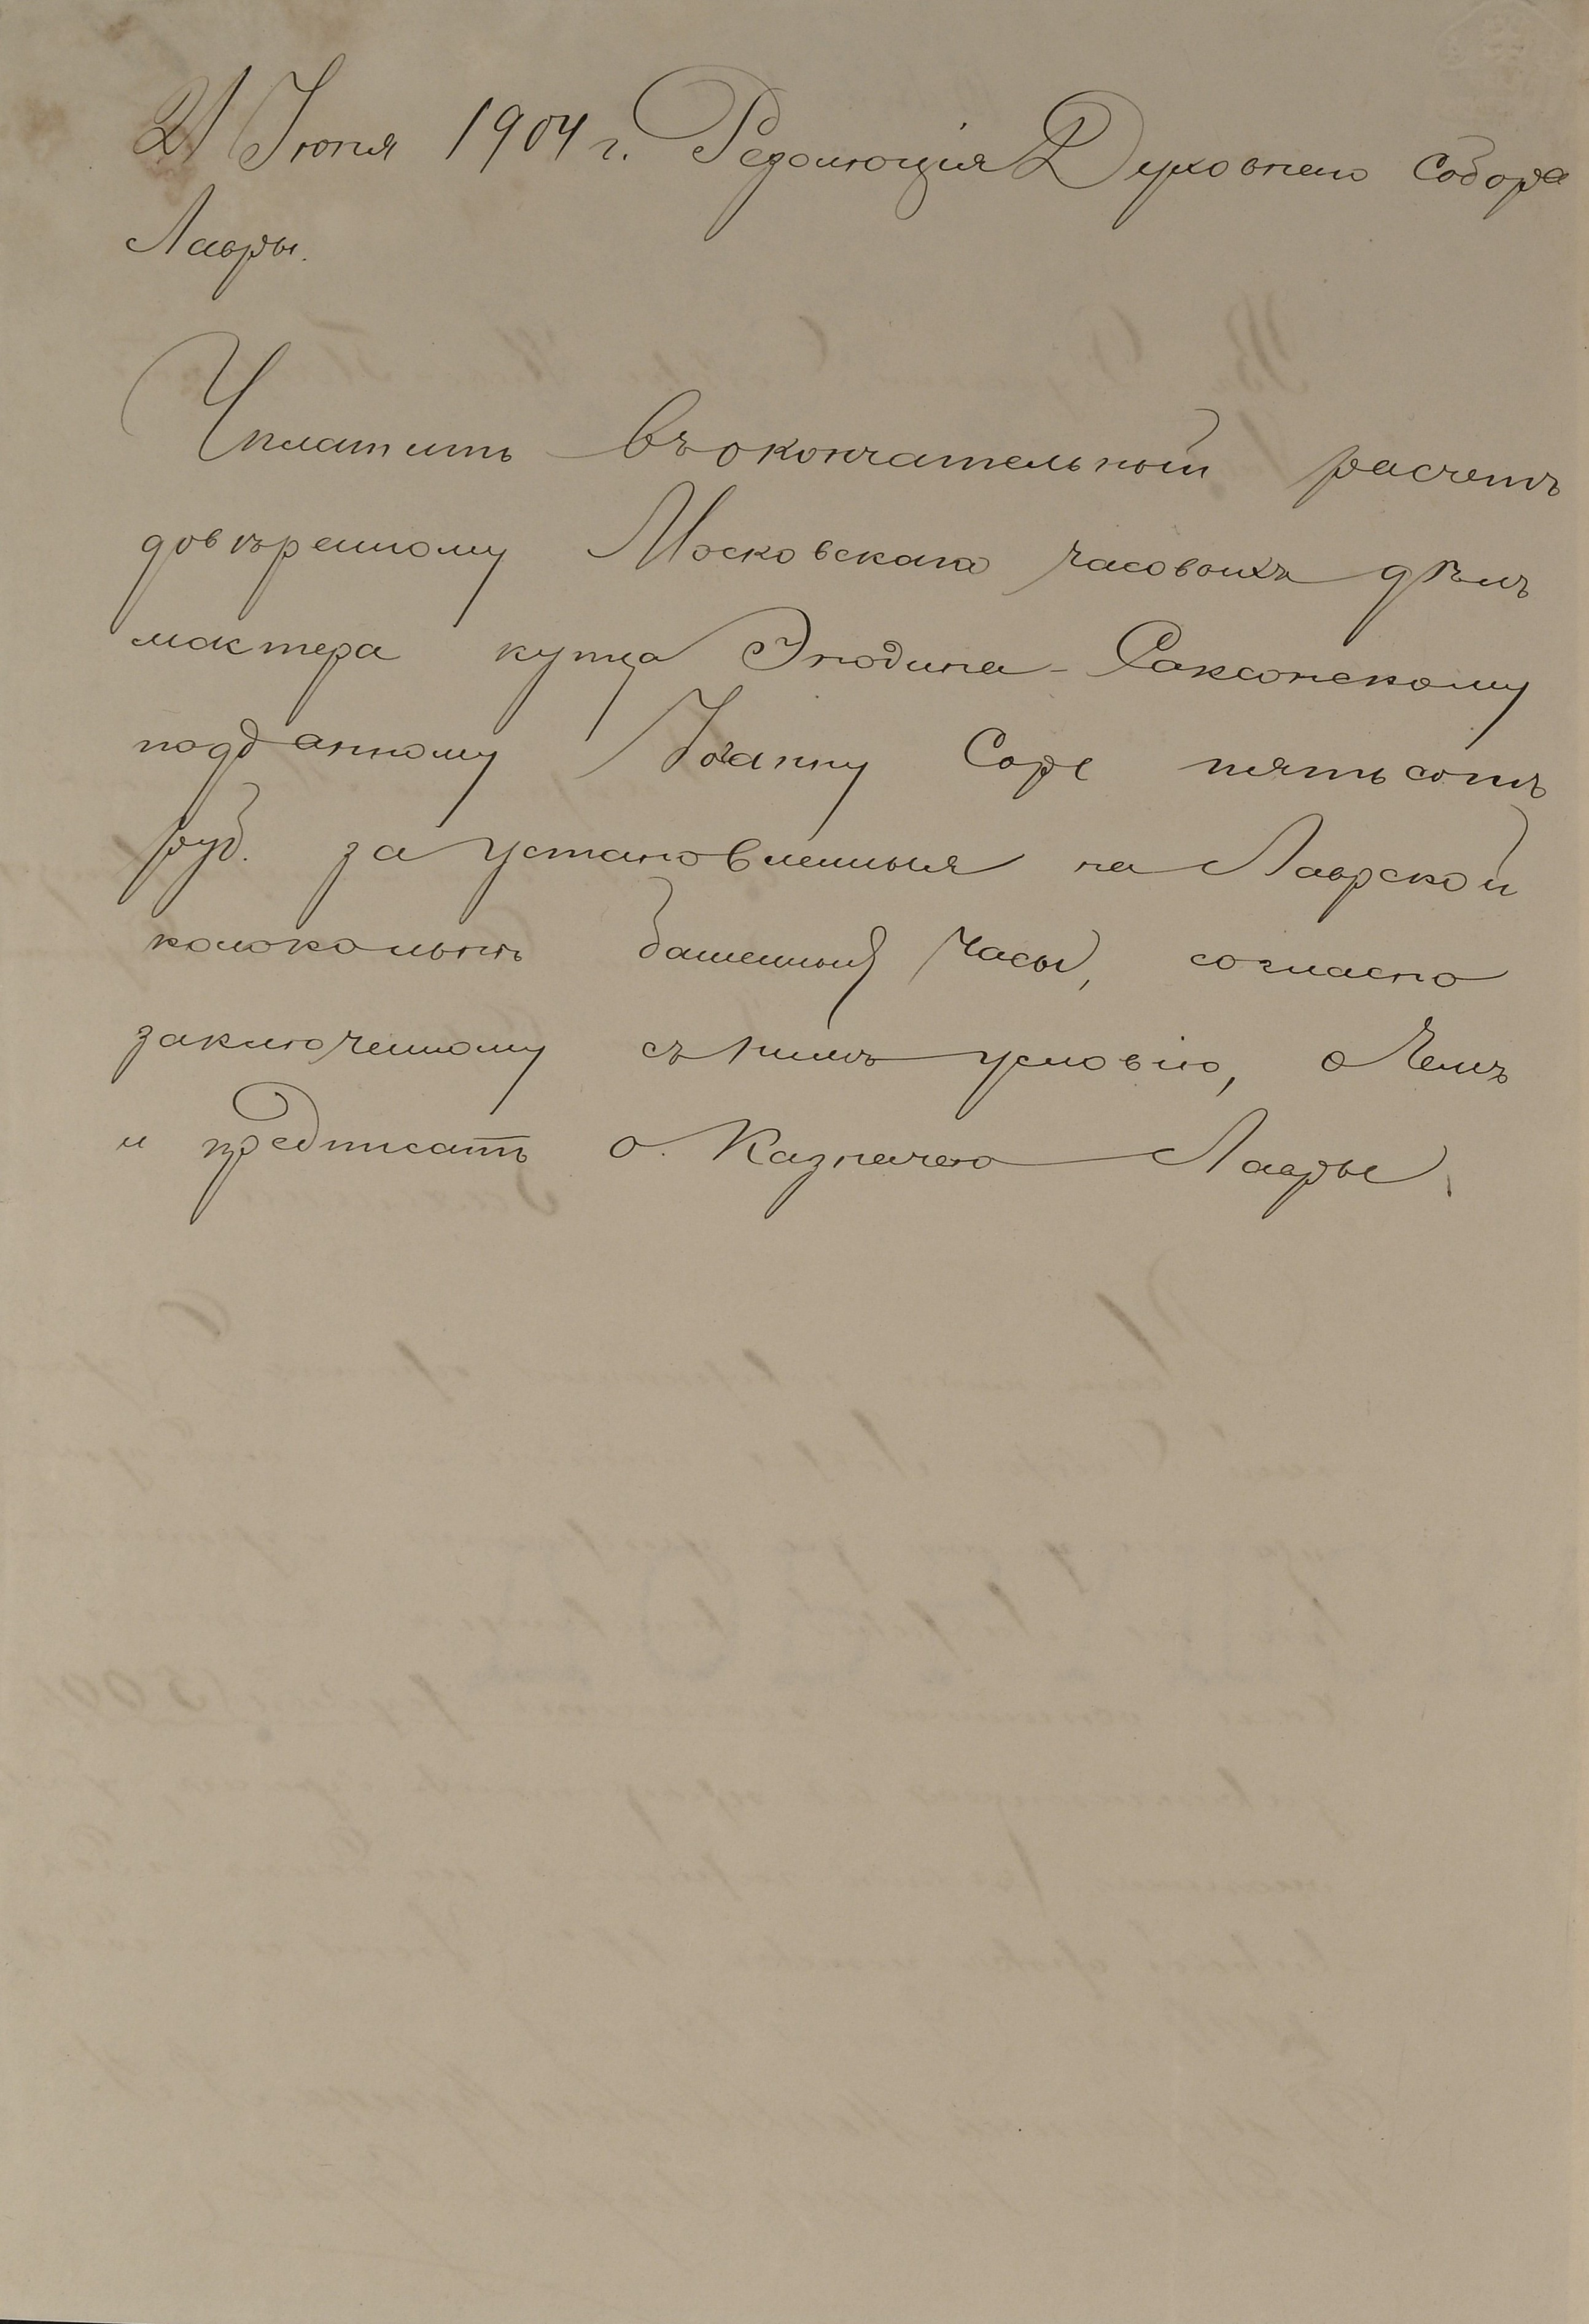 21 Іюня 1904 г. Резолюція Духовнаго Собора
Лавры.
Уплатить въ окончательный расчетъ
довѣренному Московскаго часовыхъ дѣлъ
мастера купца Энодина - Саксонскому
подданному Іоганну Соре пятьсотъ
руб. за установленныя на Лаврской
колокольнѣ башенныя часы, согласно
заключенному съ нимъ условію, о чемъ
и предписать о. Казначею Лавры.